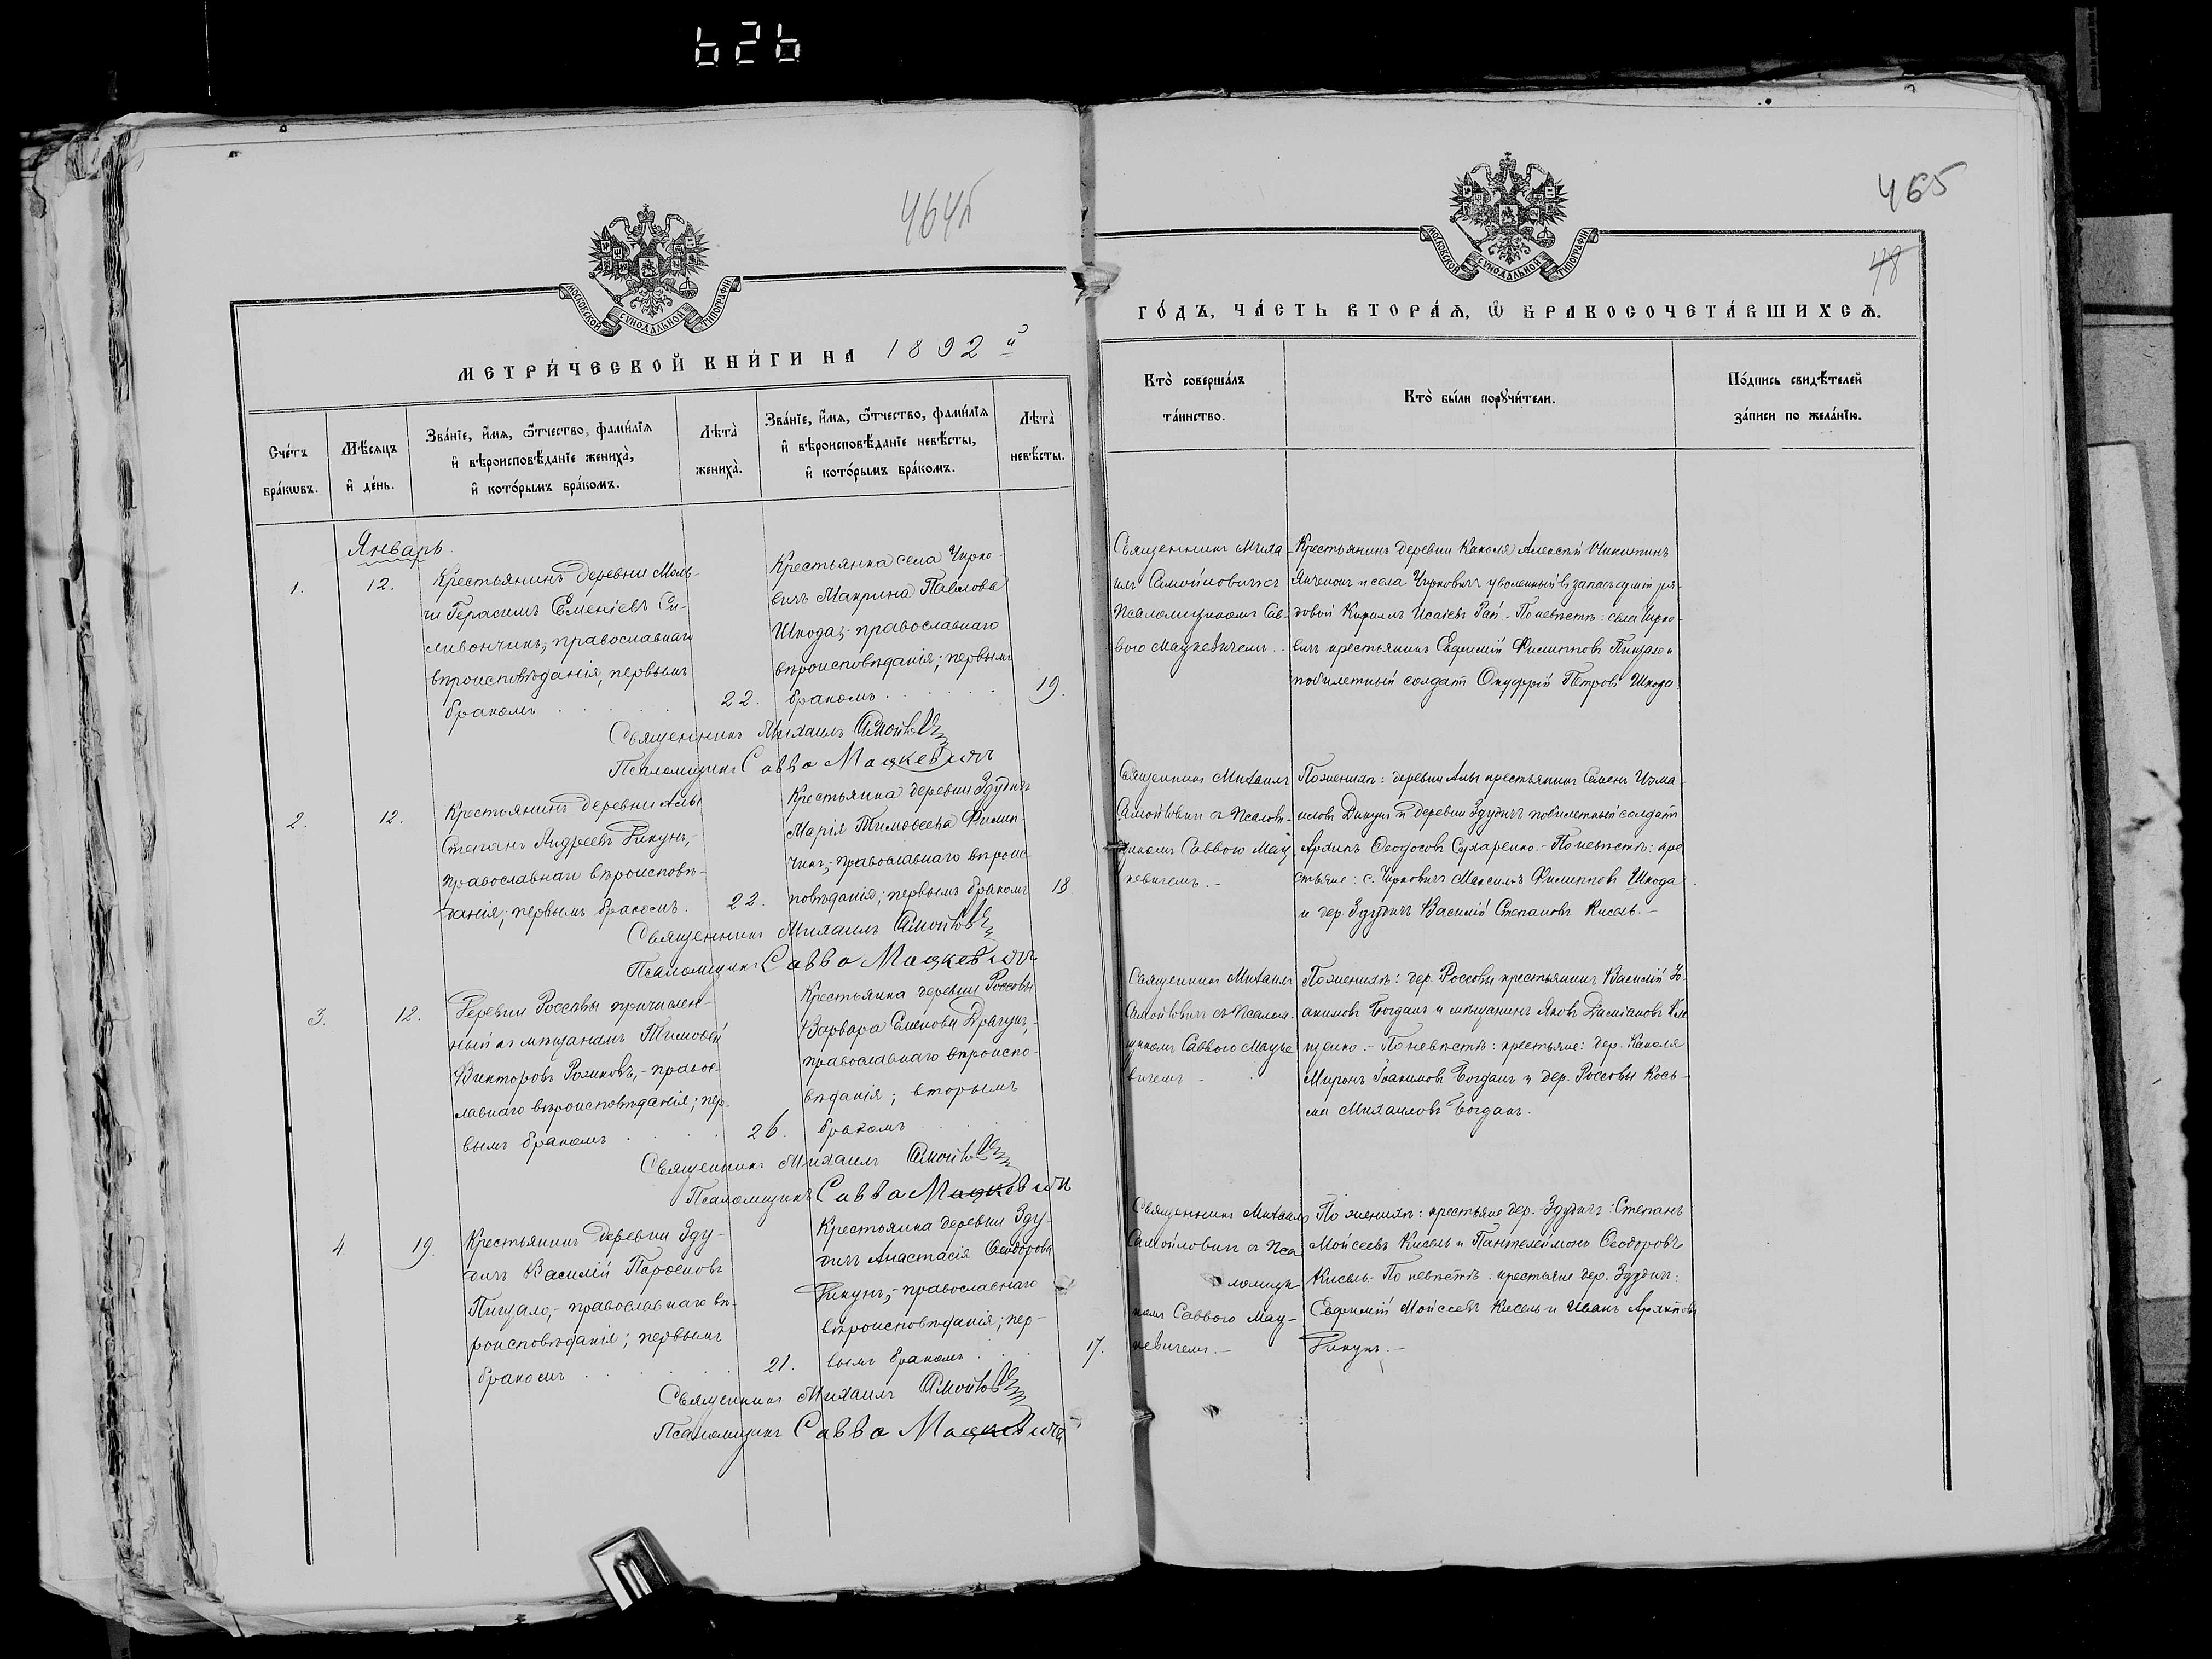 626
464б
МОСКОВСКОЙ СѴНОДАЛЬНОЙ ТИПОГРАФІИ
МЕТРИ́ЧЕСКОЙ КНИ́ГИ НА 1892 й
Сче́тъ бра́кωвъ.
Мѣ́сяцъ и҆ де́нь.
Зва́нїе, и҆́мѧ, ѻ҆́тчество, фами́лїѧ
и҆ вѣроисповѣ́данїе жениха̀,
и҆ кото́рымъ бра́комъ.
Лѣта̀ жениха̀.
Зва́нїе, и҆́мѧ, ѻ҆́тчество, фами́лїѧ
и҆ вѣроисповѣ́данїе невѣ́сты,
и҆ кото́рымъ бра́комъ.
Лѣта̀ невѣ́сты.
Январь.
1.
12.
Крестьянинъ деревни Моль-
чи Герасимъ Семеніевъ Си-
ливончикъ, православнаго
вѣроисповѣданія, первымъ
бракомъ
22.
Крестьянка села Чирко-
вичъ Макрина Павлова
Шкода,- православнаго
вѣроисповѣданія; первымъ
бракомъ
19.
Священникъ Михаилъ Самойловичъ
Псаломщикъ Савва Мацкевичъ
2.
12.
Крестьянинъ деревни Алы
Степанъ Андреевъ Дикунъ,-
православнаго вѣроисповѣ-
данія; первымъ бракомъ.
22.
Крестьянка деревни Здудичъ
Марія Тимоѳеева Филип-
чикъ,- православнаго вѣроис-
повѣданія; первымъ бракомъ
18
Священникъ Михаилъ Самойловичъ
Псаломщикъ Савва Мацкевичъ
3.
12.
Деревни Россовы причислен-
ный къ мѣщанамъ Тимоѳей
Викторовъ Розиковъ,- правос-
лавнаго вѣроисповѣданія; пер-
вымъ бракомъ
26.
Крестьянка деревни Россовы
Варвара Семенова Драгунъ,-
православнаго вѣроиспо-
вѣданія; вторымъ
бракомъ
Священникъ Михаилъ Самойловичъ
Псаломщикъ Савва Мацкевичъ
4
19.
Крестьянинъ деревни Зду-
дичъ Василій Парѳеновъ
Пищало,- православнаго вѣ-
роисповѣданія; первымъ
бракомъ
21.
Крестьянка деревни Зду-
дичъ Анастасія Ѳеодорова
Дикунъ,- православнаго
вѣроисповѣданія; пер-
вымъ бракомъ
17.
Священникъ Михаилъ Самойловичъ
Псаломщикъ Савва Мацкевичъ
465
48
МОСКОВСКОЙ СѴНОДАЛЬНОЙ ТИПОГРАФІИ
ГО́ДЪ, ЧА́СТЬ ВТОРА́Ѧ, Ѽ БРАКОСОЧЕТА́ВШИХСѦ.
Кто̀ соверша́лъ
та́инство.
Кто̀ бы́ли порꙋчи́тели.
По́дпись свидѣ́телей
за́писи по жела́нїю.
Священникъ Миха-
илъ Самойловичъ съ
Псаломщикомъ Сав-
вою Мацкевичемъ.
Крестьянинъ деревни Каколя Алексѣй Никитинъ
и села Чирковичъ уволенный въ запасъ арміи ря-
довой Кириллъ Исаіевъ Рай.- По невѣстѣ: села Чирко-
вичъ крестьянинъ Евфимій Филипповъ Пищало и
побилетный солдатъ Онуфрій Петровъ Шкода.
Священникъ Михаилъ
Самойловичъ съ Псалом-
щикомъ Саввою Мац-
кевичемъ.-
По женихѣ: деревни Алы крестьянинъ Семенъ Изма-
иловъ Дикунъ и деревни Здудичъ побилетный солдатъ
Архипъ Ѳеодосовъ Сухаренко.- По невѣстѣ: кре-
стьяне: с. Чирковичъ Максимъ Филипповъ Шкода
и дер. Здудичъ Василій Степановъ Кисель.-
Священникъ Михаилъ
Самойловичъ съ Псалом-
щикомъ Саввою Мацке-
вичемъ-
По женихѣ: дер. Россовы крестьянинъ Василій Іо-
акимовъ Богданъ и мѣщанинъ Яковъ Даміановъ Кли-
щенко.- По невѣстѣ: крестьяне: дер. Каколя
Миронъ Іоакимовъ Богданъ и дер. Россовы Кось-
ма Михаиловъ Богданъ.
Священникъ Михаилъ
Самойловичъ съ Пса-
ломщи-
комъ Саввою Мац-
кевичемъ.-
По женихѣ: крестьяне дер. Здудичъ: Степанъ
Моисеевъ Кисель и Пантелеймонъ Ѳеодоровъ
Кисель.- По невѣстѣ: крестьяне дер. Здудичъ:
Евфимій Моисеевъ Кисель и Иванъ Архиповъ
Дикунъ.-